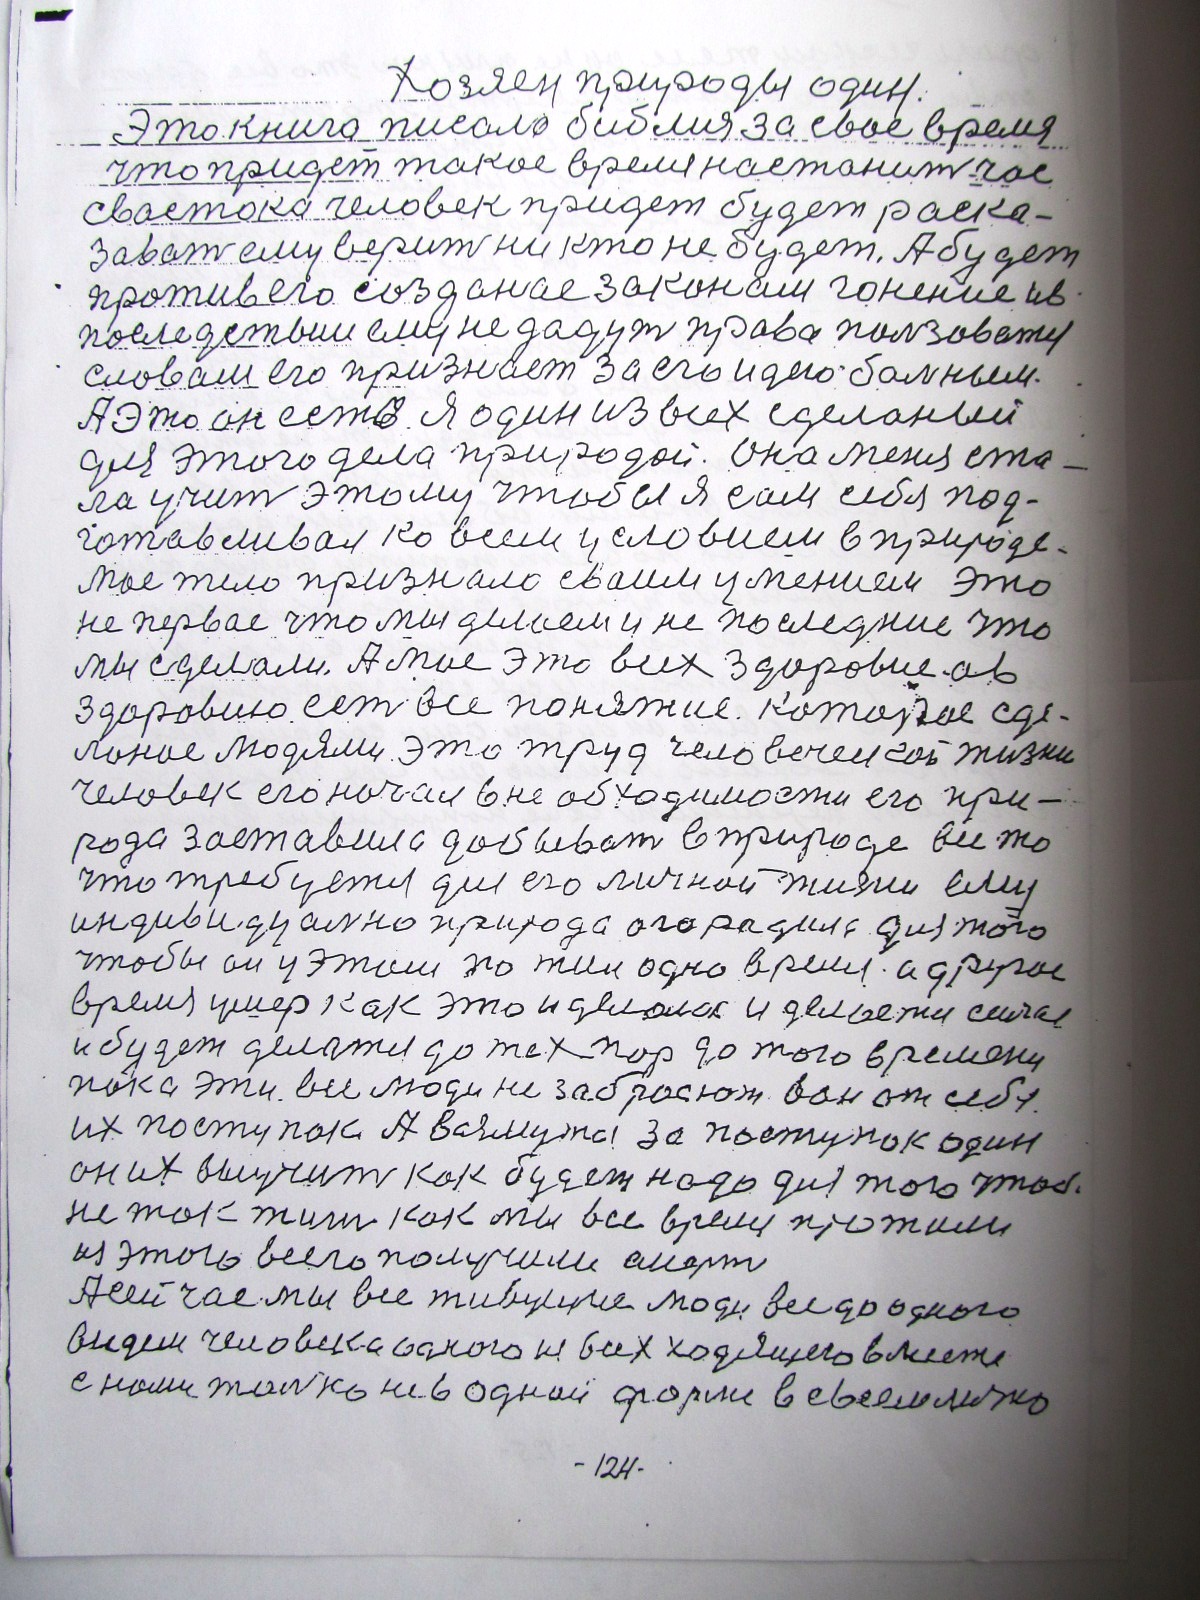 Хозяен природы один.
Это книга писало библия за свое время
что придет такое время настанит час
свастока человек придет будет раска-
зават ему верит ни кто не будет. А будет
против его созданае законам гонение ив
последствии ему не дадут праваползоватя
словами его признает за его идею болным.
А это он есть. Я один из всех сделаный
для этого дела природой. Она меня ста-
ла учит этому чтобы я сам себя под-
готавливал ко всем условием в природе-
мое тело признало своим умением это
не первае что мы делаем и не последние что
мы сделали. А мое это всех здоровие. ав
здоровию ест все понятие. которое сде-
ланое людями это труд человеческой жизни
человек его начал в не обходимости его при-
рода заставила добыват в природе все то
что требуетя для его личной жизни ему
индивидуално природа огородила для того
чтобы он у этом по жил одно время. а другое
время умер как это и делолос и делаетя сичас
и будет делатя до тех пор до того времени
пока эти. все люди не забросют вон от себя.
их поступок. А возмутся за поступок один
он их выучит как будет надо для того чтоб.
не так жит как мы все время прожили
из этого всего получили смерт
А сейчас мы все живущие люди все до одного
видем человека одного из всех ходящего вместе
с нами толко не в одной форме в своем лично
-124-